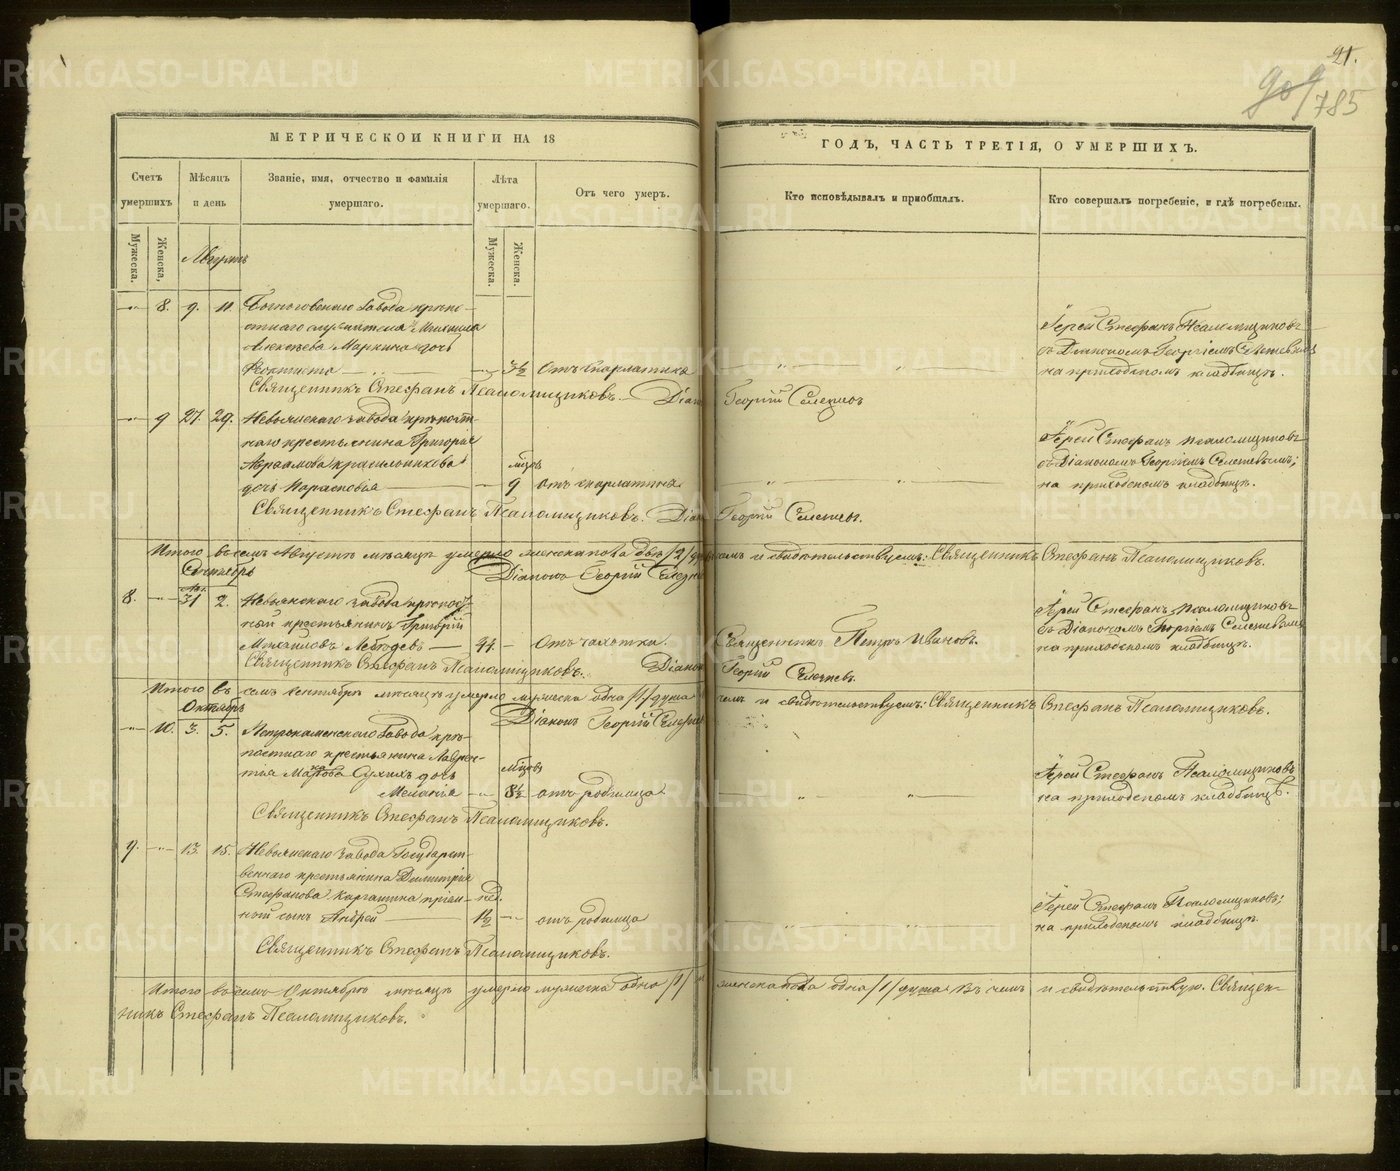 21.
785
МЕТРИЧЕСКОЙ КНИГИ НА 18
ГОДЪ, ЧАСТЬ ТРЕТІЯ, О УМЕРШИХЪ.
Счетъ умершихъ
Мѣсяцъ и день
Званіе, имя, отчество и фамилія умершаго.
Лѣта умершаго.
Отъ чего умеръ.
Кто исповѣдывалъ и пріобщалъ.
Кто совершалъ погребеніе, и гдѣ погребены.
Мужеска.
Женска,
Мужеска.
Женска.
Августъ
8. 9. 11.
Завода крѣпо-
стнаго служителя Михаила
Алексѣева Маркина дочь
Феоктиста 3½ Отъ скарлатина
Іерей Стефанъ Псаломщиковъ
съ Діакономъ Георгіемъ Селезневымъ
на приходскомъ кладбищѣ.
Священникъ Стефанъ Псаломщиковъ. Діаконъ Георгій Селезневъ
9 27. 29. Невьянскаго завода крѣпост-
наго крестьянина Григорія
Авраамова Красильникова
дочь Парасковія мѣсяц. 9 отъ скарлатина
Іерей Стефанъ Псаломщиковъ
съ Діакономъ Георгіемъ Селезневымъ;
на приходскомъ кладбищѣ.
Священникъ Стефанъ Псаломщиковъ. Діаконъ Георгій Селезневъ.
Итого въ семъ Августѣ мѣсяцѣ умерло женска пола двѣ /2/ души въ чемъ и свидѣтельствуемъ: Священникъ Стефанъ Псаломщиковъ.
Діаконъ Георгій Селезневъ
Сентябрь
Авг.
8. 31 2. Невьянскаго завода крѣпост-
ной крестьянинъ Григорій
Михаиловъ Лебедевъ 44. Отъ чахотки.
Священникъ Петръ Ивановъ.
Іерей Стефанъ Псаломщиковъ
съ Діакономъ Георгіемъ Селезневымъ
на приходскомъ кладбищѣ.
Священникъ Стефанъ Псаломщиковъ. Діаконъ Георгій Селезневъ.
Итого въ семъ Сентябрѣ мѣсяцѣ умерло мужеска одна /1/ душа въ чемъ и свидѣтельствуемъ: Священникъ Стефанъ Псаломщиковъ.
Діаконъ Георгій Селезневъ
Октябрь
10. 3. 5. Петрокаменскаго Завода крѣ-
постнаго крестьянина Лаврен-
тія Сухихъ дочь
Меланія мѣсяцовъ 8½ отъ родимца
Іерей Стефанъ Псаломщиковъ
на приходскомъ кладбищѣ.
Священникъ Стефанъ Псаломщиковъ.
9. 13. 15. Невьянскаго завода Государст-
веннаго крестьянина Димитрія
Стефанова Каргашина пріем-
ный сынъ Андрей нед. 1½ отъ родимца
Іерей Стефанъ Псаломщиковъ;
на приходскомъ кладбищѣ.
Священникъ Стефанъ Псаломщиковъ.
Итого въ семъ Октябрѣ мѣсяцѣ умерло мужеска одна /1/ и женска пола одна /1/ душа въ чемъ и свидѣтельствую. Священ-
никъ Стефанъ Псаломщиковъ.
METRIKI.GASO-URAL.RU